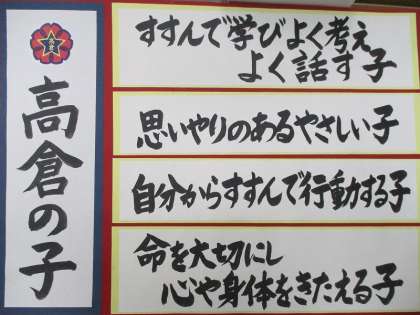 高倉の子
すすんで学びよく考え
よく話す子
思いやりのあるやさしい子
自分からすすんで行動する子
命を大切にし
心や身体をきたえる子